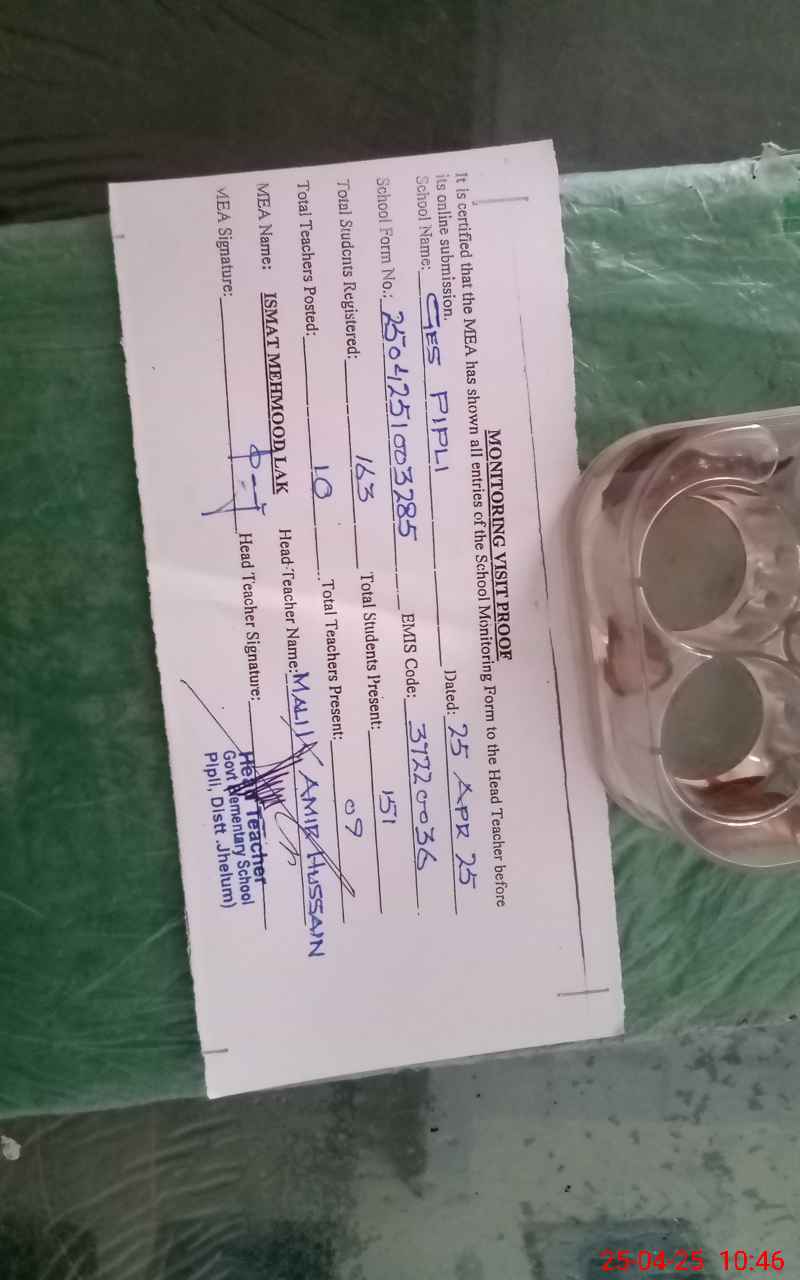 MONITORING VISIT PROOF
It is certified that the MEA has shown all entries of the School Monitoring Form to the Head Teacher before
its online submission.
School Name: GES PIPLI Dated: 25 APR 25
School Form No.: 2504251003285 EMIS Code: 37220036
Total Students Registered: 163 Total Students Present: 151
Total Teachers Posted: 10 Total Teachers Present: 09
MEA Name: ISMAT MEHMOOD LAK Head Teacher Name: MALIK AMIR HUSSAIN
MEA Signature: Head Teacher Signature:
Head Teacher
Govt Elementary School
Pipli, Distt .Jhelum)
25-04-25 10:46